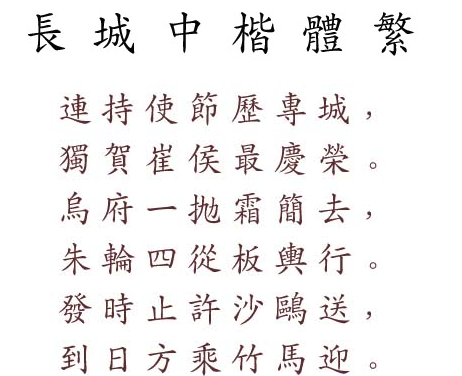 長城中楷體繁
連持使節歷專城，
獨賀崔侯最慶榮。
烏府一拋霜簡去，
朱輪四從板輿行。
發時止許沙鷗送，
到日方乘竹馬迎。